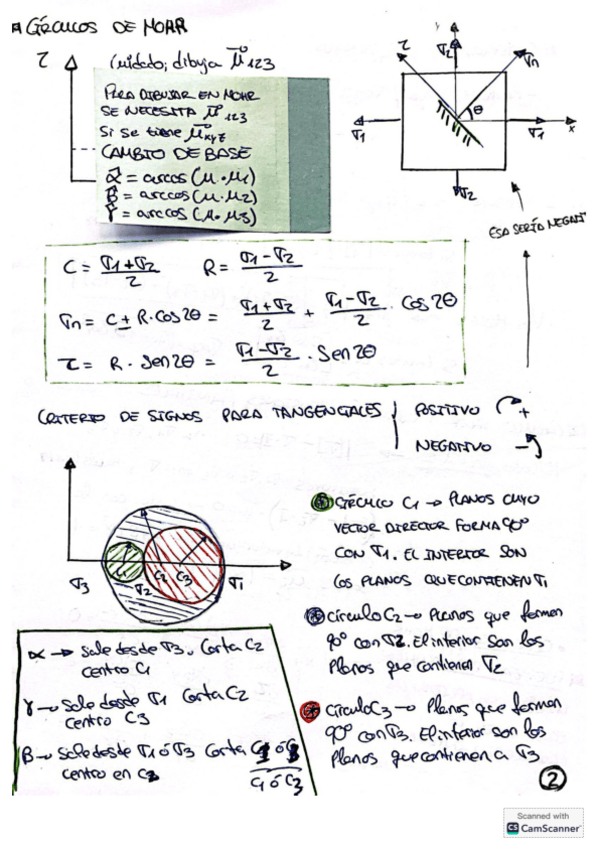 CÍRCULOS DE MOHR
τ
Cuidado; dibuja μ⃗ 123
PARA DIBUJAR EN MOHR
SE NECESITA μ⃗ 123
Si se tiene μ⃗ xyz
CAMBIO DE BASE
α̂ = arccos (μ · μ1)
β̂ = arccos (μ · μ2)
γ̂ = arccos (μ · μ3)
y
τ
σ2
σn
θ
σ1
σ1
x
σ2
ESO SERÍA NEGATI
C = σ1+σ2 / 2 R = σ1-σ2 / 2
σn = C ± R·cos2θ = σ1+σ2 / 2 + σ1-σ2 / 2 · cos 2θ
τ = R · sen2θ = σ1-σ2 / 2 · sen2θ
CRITERIO DE SIGNOS PARA TANGENCIALES
POSITIVO +
NEGATIVO -
σ3
C1
σ2
C2
C3
σ1
CÍRCULO C1 → PLANOS CUYO
VECTOR DIRECTOR FORMA 90º
CON σ1. EL INTERIOR SON
LOS PLANOS QUE CONTIENEN σ1
círculo C2 → Planos que forman
90º con σ2. El interior son los
Planos que contienen σ2
CírculoC3 → Planos que forman
90º con σ3. El interior son los
Planos que contienen a σ3
α → Sale desde σ3, Corta C2
centro C1
γ → Sale desde σ1 Corta C2
centro C3
β → Sale desde σ1 ó σ3 Corta
C1 ó C3
centro en C2
2
Scanned with
CS CamScanner